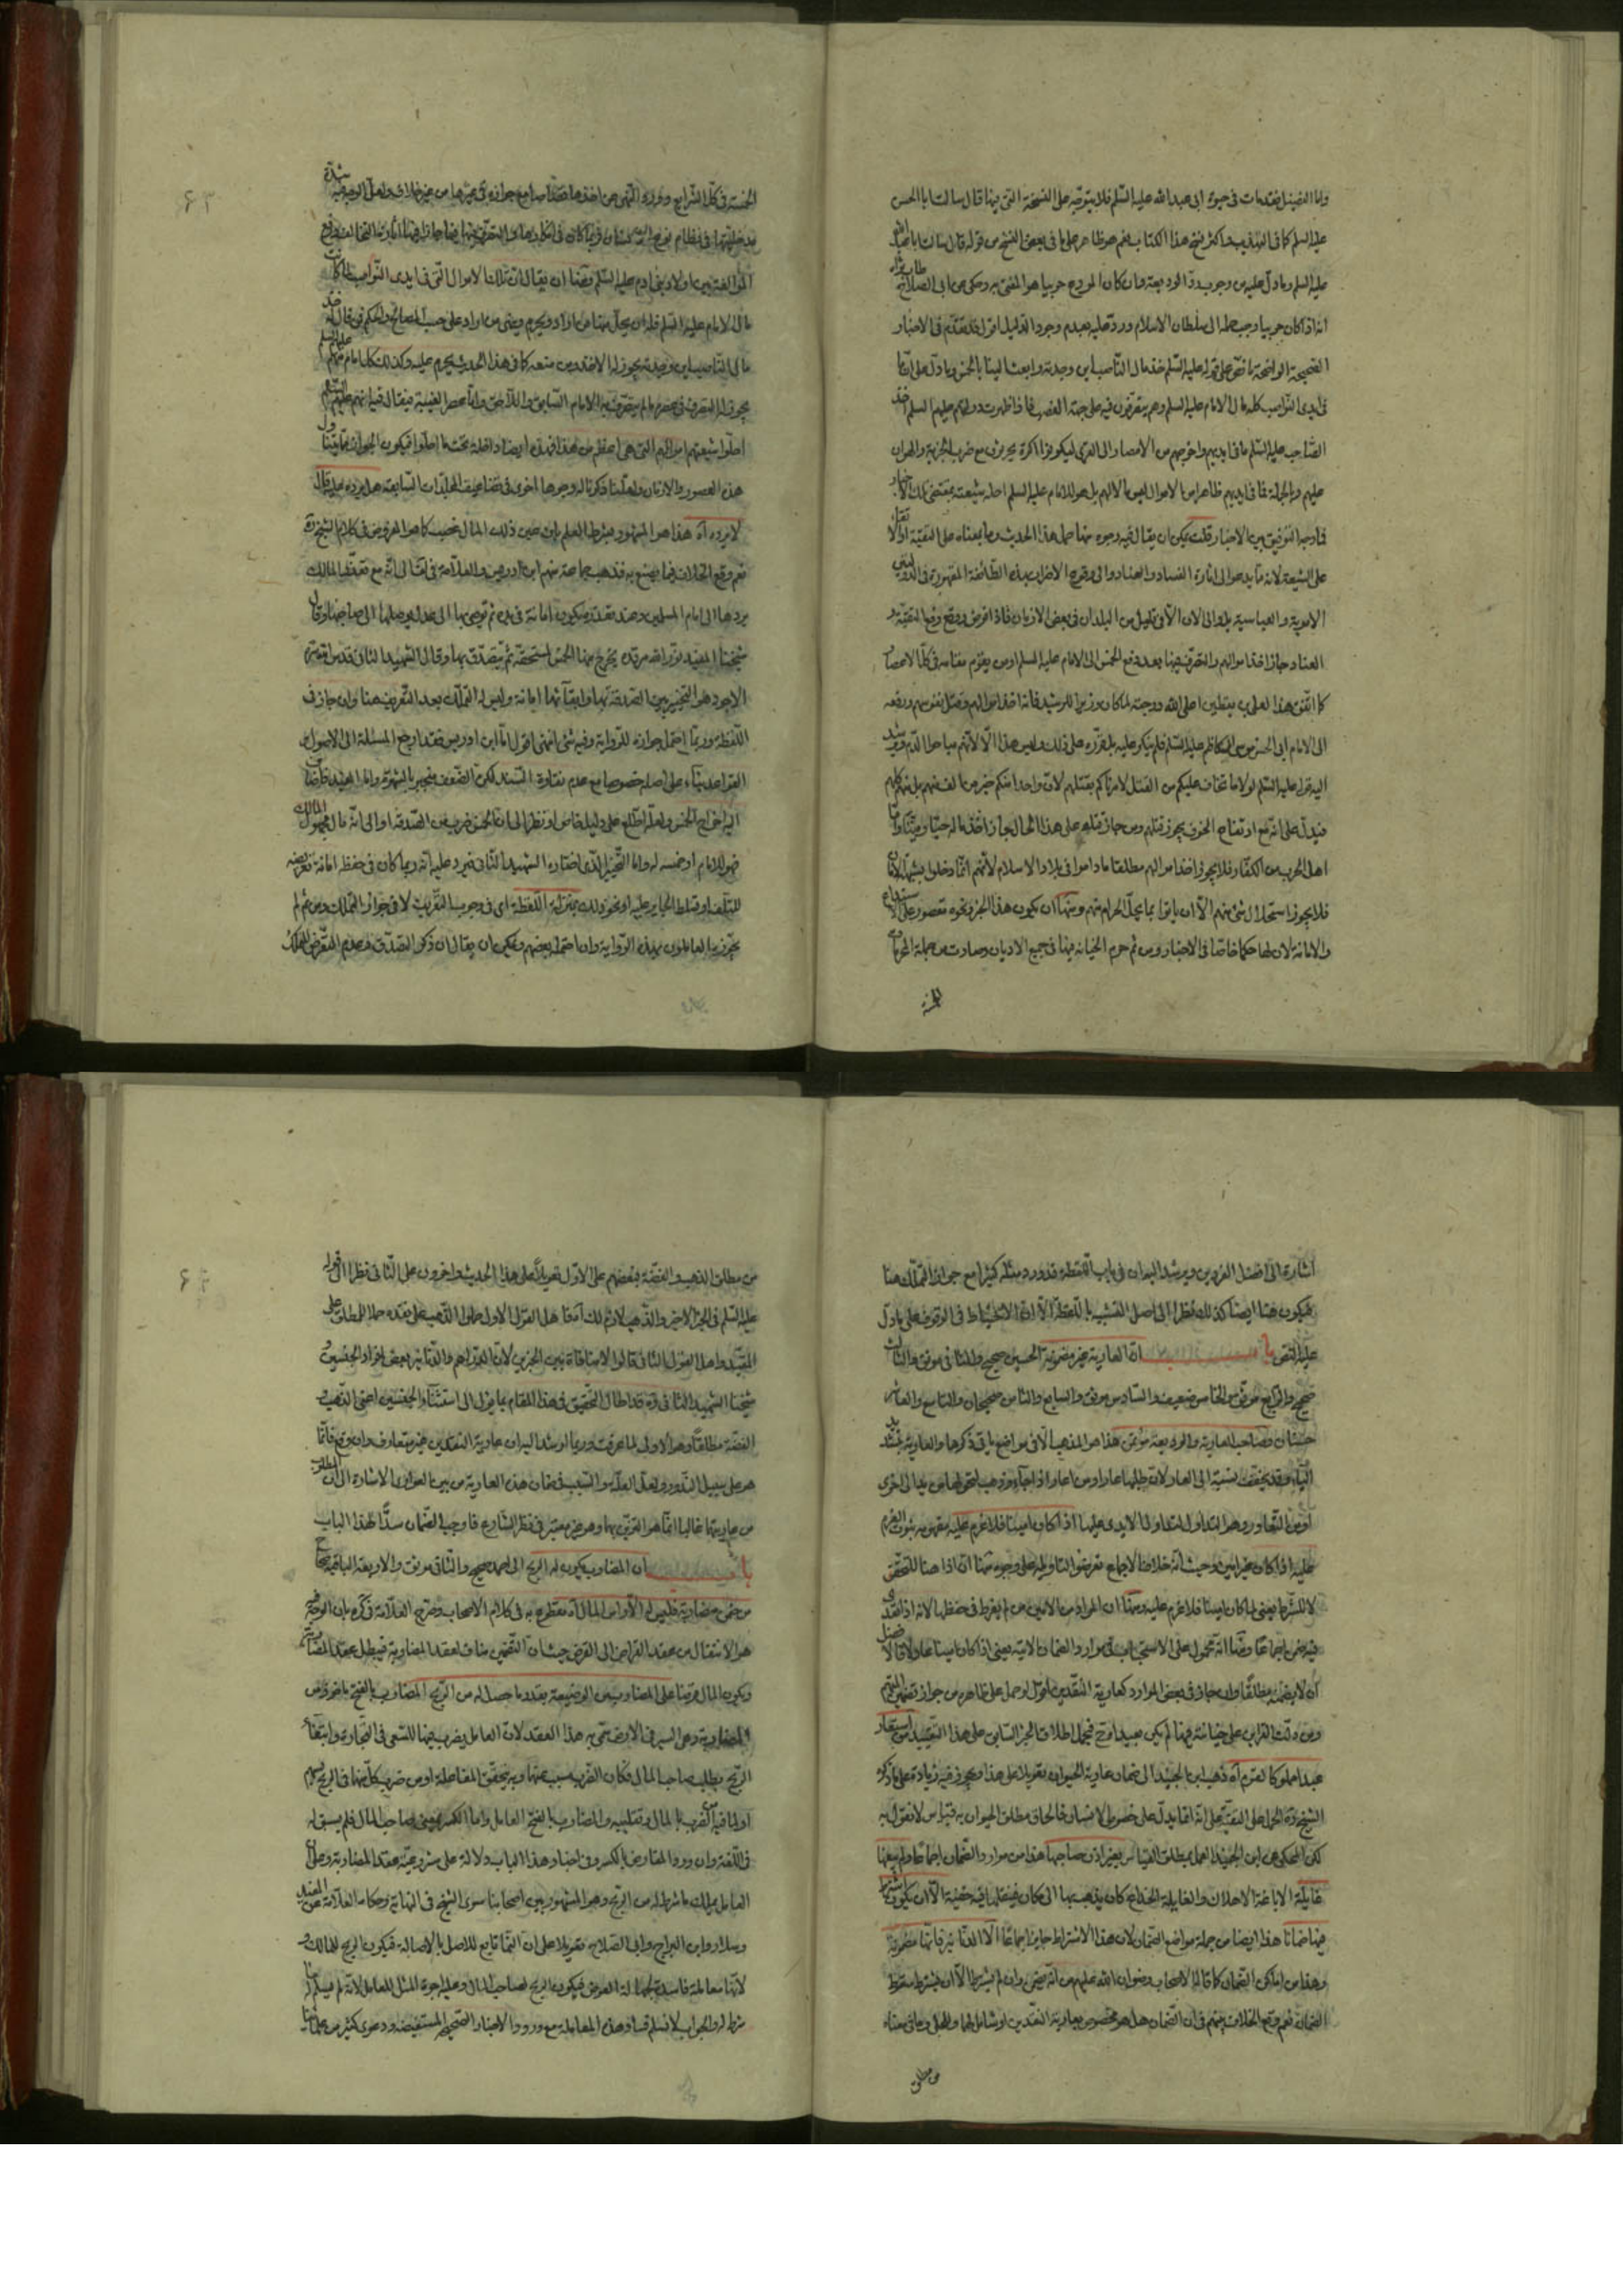 واما الفضيل فقد مات في حيوة ابي عبدالله عليه السلم فلا يتوجه على النسخة التي فيها قال سالت ابا الحسن
عليه السلم كما في التهذيب واكثر نسخ هذا الكتاب نعم هو ظاهر على ما في بعض النسخ من قوله قال سالت ابا عبد الله
عليه السلم وما دل عليه من وجوب رد الوديعة وان كان المودع حربيا هو المفتى به وحكى عن ابي الصلاح
انه اذا كان حربيا وجب حملها الى سلطان الاسلام ورد عليه بعدم وجود الدليل اقول قد تقدم في الاخبار
الصحيحة الواضحة ما نص على قوله عليه السلم خذ مال الناصب اين وجدته وابعث الينا بالخمس وما دل على ان ما
في ايدي النواصب كله مال الامام عليه السلم وهم يتصرفون فيه على جهة الغصب فاذا ظهرت دولتهم عليهم السلم اخذ
الصاحب عليه السلم ما في ايديهم واخرجهم من الامصار الى القرى ليكونوا اكرة يحرثون مع ضرب الجزية والهوان
عليهم وبالجملة فما في ايديهم ظاهرا من الاموال ليس مالا لهم بل هو للامام عليه السلم احله لشيعته بمقتضى تلك الاخبار
فما وجه التوفيق بين الاخبار قلت يمكن ان يقال فيه وجوه منها حمل هذا الحديث وما بمعناه على التقية
على الشيعة لانه مما يدعو الى اثارة الفساد والعناد والى وقوع الاضرار بهذه الطائفة المقهورة في الدولتين
الاموية والعباسية بل والى الان الا في قليل من البلدان في بعض الازمان فاذا فرض ووقع رفع التقية و
العناد جاز اخذ اموالهم والتصرف فيها بعد دفع الخمس الى الامام عليه السلم او من يقوم مقامه في كل الاعصار
كما اتفق هذا لعلي بن يقطين اعلى الله درجته لما كان وزيرا للرشيد فانه اخذ اموالهم وقتل نفوسهم ورفعه
الى الامام ابي الحسن موسى الكاظم عليه السلم فلم ينكر عليه بل قرره على ذلك وليس هذا الا لانهم مباحوا الدم ويرشد
اليه قوله عليه السلم لولا ما نخاف عليكم من القتل لامرناكم بقتلهم لان واحدا منكم خير من الف منهم بل منهم كلهم
فيدل على انه مع ارتفاع الخوف يجوز قتلهم ومن جاز قتله على هذا الحال جاز اخذ ماله حيا وميتا واما
اهل الحرب من الكفار فلا يجوز اخذ اموالهم مطلقا ما داموا في بلاد الاسلام لانهم انما دخلوا بشبهة الامان
فلا يجوز استحلال شئ منهم الا ان ياتوا بما يحل الحرام منهم ومنها ان يكون هذا الخبر ونحوه مقصور على الاستيداع
والامانة لان لها حكما خاصا في الاخبار ومن ثم حرم الخيانة فيها في جميع الاديان وصارت من جملة المحرمات
الخمسة
الخمسة في كل الشرايع وورود النهي عن اخذها قصاصا مع جوازه في غيرها من غير خلاف ولعل الوجه فيه شدة
مدخليتها في نظام نوع
المؤالفة بين اولاد بني ادم عليه السلم ومنها ان يقال ان تلك الاموال التي في ايدي النواصب لما كانت
مال الامام عليه السلم فله ان يحل منها من اراد ويحرم ويمضي من اراد على حسب المصالح والحكم فمن قال له خذ
مال الناصب اين وجدته يجوز له الاخذ ومن منعه كما في هذا الحديث يحرم عليه وكذلك كل امام منهم عليهم السلم
يجوز له التصرف في عصره ما لم يتصرف به الامام السابق واللاحق واما عصر الغيبة فيقال فيه انهم عليهم السلم
احلوا شيعتهم اموالهم التي هي اعظم من هذا فهذه ايضا داخلة تحت ما احلوا فيكون الجواز مما يتناول
هذه العصور والازمان ولعلنا ذكرنا له وجوها اخرى في تضاعيف المجلدات السابقة هل يرده عليه قال
لا يرده اه هذا هو المشهور بشرط العلم بان عين ذلك المال غصب كما هو المفروض في كلام الشيخ ره
نعم وقع الخلاف فيما يصنع به فذهب جماعة منهم ابن ادريس والعلامة في احد اقواله الى انه مع تعذر المالك
يردها الى امام المسلمين وعند تعذره يكون امانة في يده ثم يوصي بها الى عدل ليوصلها الى صاحبها وقال
شيخنا المفيد نور الله مرقده يخرج منها الخمس لمستحقه ثم يتصدق بها وقال الشهيد الثاني قدس الله سره
الاجود هو التخيير بين الصدقة بها وابقائها امانة وليس له التملك بعد التعريف هنا وان جاز في
اللقطة وربما احتمل جوازه للرواية وفيه شئ انتهى اقول اما ابن ادريس فقد ارجع المسئلة الى الاصول و
القواعد بناء على اصله خصوصا مع عدم نقاوة السند لكن الضعف منجبر بالشهرة واما المفيد فاضاف
اليه اخراج الخمس ولعله اطلع على دليل خاص او نظرا الى ان الخمس ضرب من الصدقة او الى انه مال مجهول المالك
فهو للامام او خمسه له واما التخيير الذي اختاره الشهيد الثاني فيرد عليه انه ربما كان في حفظه امانة تعريضه
للتلف او تسلط الجاير عليه او نحو ذلك بمنزلة اللقطة اي في وجوب التعريف لا في جواز التملك ومن ثم لم
يجوزه العاملون بهذه الرواية وان احتمله بعضهم ويمكن ان يقال ان ذكر التصدق وعدم التعرض للتملك
اشارة الى افضل الفردين ويرشد اليه ان في باب اللقطة قد ورد مثله كثيرا مع جواز التملك هنا
فيكون هنا ايضا كذلك نظرا الى اصل التشبيه باللقطة الا ان الاحتياط في الوقوف على ما دل
عليه النص باب ان العارية غير مضمونة الحسين صحيح والثاني موثق والثالث
صحيح والرابع موثق والخامس ضعيف والسادس موثق والسابع والثامن صحيحان والتاسع والعاشر
حسنان وصاحب العارية والوديعة مؤتمن هذا هو المذهب الا في مواضع ياتي ذكرها والعارية بتشديد
الياء وقد يخفف نسبة الى العار لان طلبها عار او من اعار اذا جاء وذهب لتحولها من يد الى اخرى
او من التعاور وهو التداول لتداول الايدي عليها اذا كان امينا فلا غرم عليه مفهومه ثبوت الغرم
عليه اذا كان غير امين وحيث انه خلاف الاجماع تعرضوا لتاويله على وجوه منها ان اذا هنا للتحقق
لا للشرط يعني لما كان امينا فلا غرم عليه ومنها ان المراد من الامين من لم يفرط في حفظها لانه اذا تعدى
فيه ضمن اجماعا ومنها انه محمول على الاستحباب في موارد الضمان الاتية يعني اذا كان امينا عادلا فالافضل
ان لا يضمنه مطلقا وان جاز في بعض الموارد كعارية النقدين اقول لو حمل على ظاهره من جواز تضمين المتهم
ومن دلت القراين على خيانته فيها لم يكن بعيدا فيحمل اطلاق الخبر السابق على هذا التقييد من استعار
عبدا مملوكا لقوم اه ذهب ابن الجنيد الى ضمان عارية الحيوان تعويلا على هذا ويجوز فيه زيادة على ما ذكره
الشيخ ره الحمل على التقية على انه انما يدل على خصوص الانسان فالحاق مطلق الحيوان به قياس لا نقول به
لكن المحكي عن ابن الجنيد العمل بمطلق القياس بغير اذن صاحبها هذا من موارد الضمان اجماعا ولم يبغها
غايلة
فيها ضمانا هذا ايضا من جملة مواضع الضمان لان هذا الاشتراط جايز اجماعا الا الدنانير فانها مضمونة
وهذا من اماكن الضمان كما قاله الاصحاب رضوان الله عليهم من انه يضمن وان لم يشترط الا ان يشترط سقوط
الضمان نعم وقع الخلاف بينهم في ان الضمان هل هو مخصوص بعارية النقدين او شامل لهما وللحلي وما في معناه
من مطلق
من مطلق الذهب والفضة فبعضهم على الاول تعويلا على هذا الحديث واخرون على الثاني نظرا الى قوله
عليه السلم في الخبر الاخير والذهب لازم لك اه فاهل القول الاول حملوا الذهب على نقده حملا للمطلق على
المقيد واهل القول الثاني قالوا لا منافاة بين الخبرين لان الدراهم والدنانير بعض افراد الجنسين و
شيخنا الشهيد الثاني ره قد اطال التحقيق في هذا المقام بما يؤل الى استثناء الجنسين اعني الذهب و
الفضة مطلقا وهو الاولى لما عرفت وربما يرشد اليه ان عارية النقدين غير متعارف وان وقع فانما
هو على سبيل الندور ولعل العلة والسبب في ضمان هذه العارية من بين العواري الاشارة الى ان المطلوب
من عاريتها غالبا انما هو التزين بها وهو غير معتبر في نظر الشارع فاوجب الضمان سدا لهذا الباب
باب ان المضارب يكون له الربح الى اخره صحيح والثاني موثق والاربعة الباقية صحاح
من ضمن مضاربه فليس له الا راس المال اه مقطوع به في كلام الاصحاب وصرح العلامة في كره بان الوجه فيه
هو الانتقال من عقد القراض الى القرض حيث ان التضمين مناف لعقد المضاربة فيبطل عقد المضاربة
ويكون المال قرضا على المضارب وليس الوضيعة بقدر ما حصل له من الربح المضارب بالفتح ماخوذ من
المضاربة وهي السير في الارض سمي به هذا العقد لان العامل يضرب فيها للسعي في التجارة وابتغاء
الربح بطلب صاحب المال فكان الضرب مسبب عنهما وبه تحقق المفاعلة او من ضرب كل منهما في الربح بسهم
او لما فيه من الضرب بالمال وتقليبه والمضارب بالفتح العامل واما بالكسر فهو صاحب المال فلم يسبق له
في اللغة وان ورد المقارض بالكسر وفي اخبار هذا الباب دلالة على مشروعية عقد المضاربة وعلى ان
العامل يملك ما شرط له من الربح وهو المشهور بين اصحابنا سوى الشيخ في النهاية وحكاه العلامة عن المفيد
وسلار وابن البراج وابي الصلاح تعويلا على ان النماء تابع للاصل بالاصالة فيكون الربح للمالك و
لانها معاملة فاسدة لجهالة العوض فيكون الربح لصاحب المال وعليه اجرة المثل للعامل لانه لم يسلم له ما
شرط له والجواب لا نسلم فساد هذه المعاملة مع ورود الاخبار الصحيحة المستفيضة ودعوى كثير من علمائنا